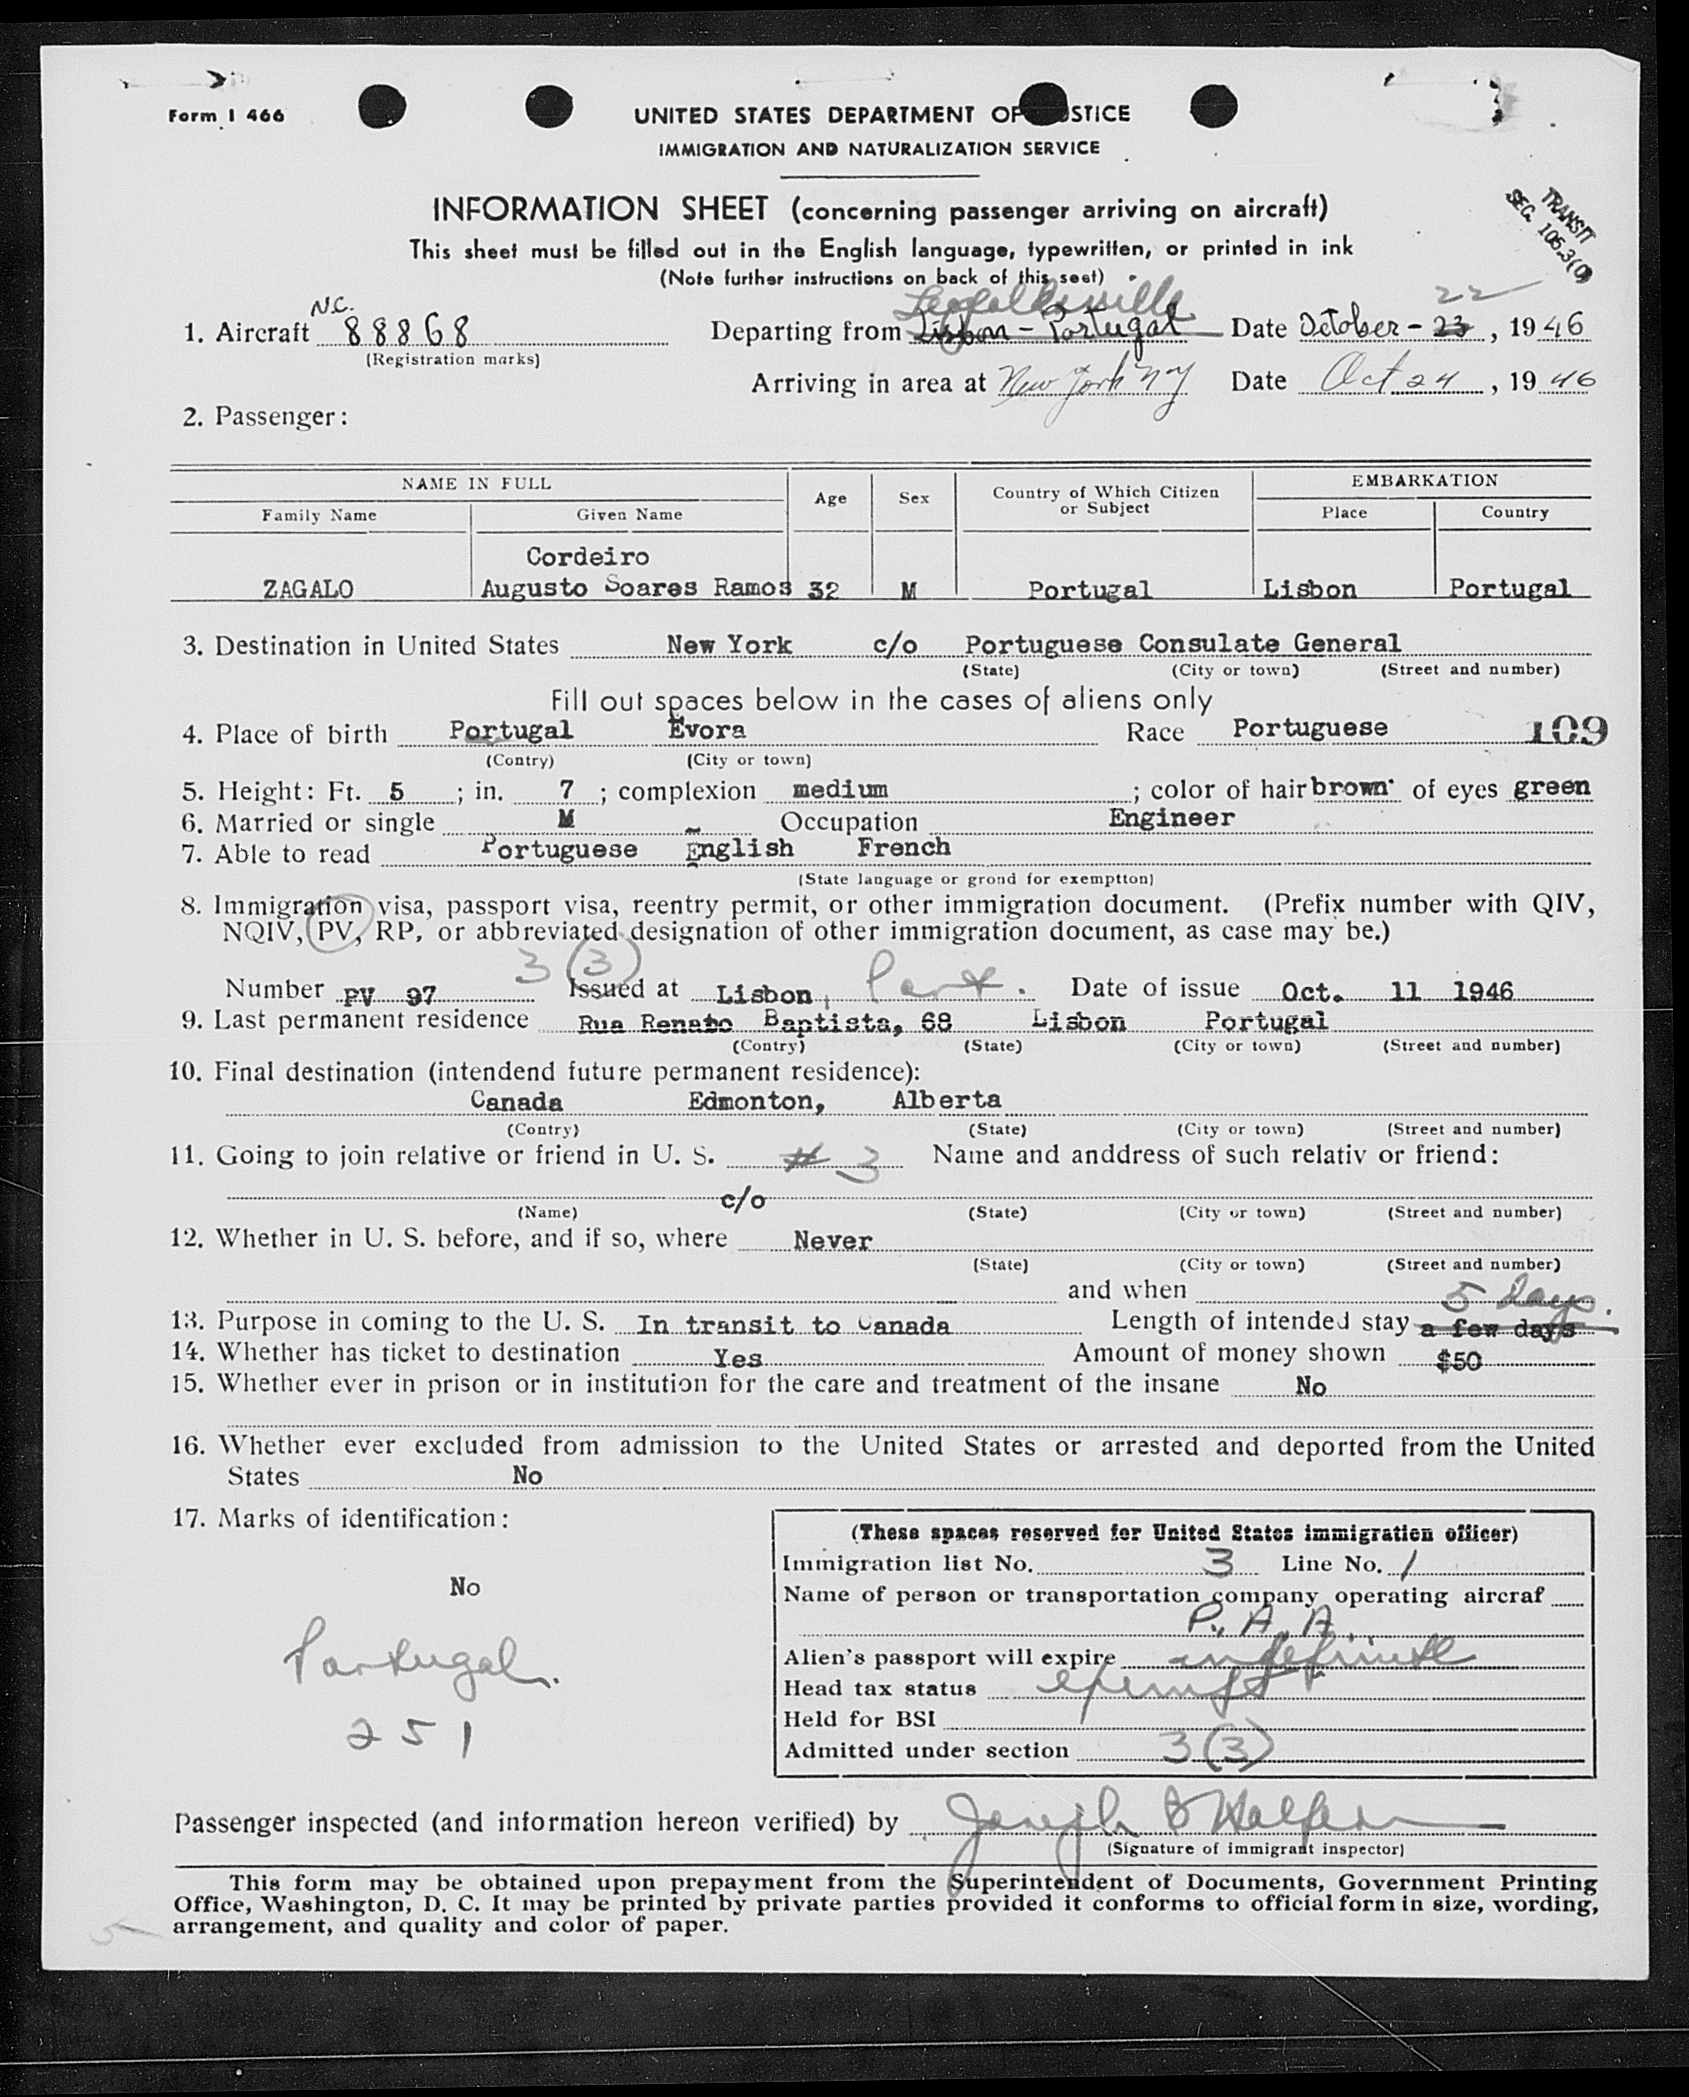 Form I 466
UNITED STATES DEPARTMENT OF JUSTICE
IMMIGRATION AND NATURALIZATION SERVICE
INFORMATION SHEET (concerning passenger arriving on aircraft)
This sheet must be filled out in the English language, typewritten, or printed in ink
(Note further instructions on back of this seet)
TRANSIT
SEC. 105.3(C)
N.C.
22
1. Aircraft 88868 Departing from Lisbon - Portugal Date October - 23, 1946
(Registration marks)
Arriving in area at New York NY Date Oct 24, 1946
2. Passenger:
NAME IN FULL Age Sex Country of Which Citizen or Subject EMBARKATION
Family Name Given Name Place Country
Cordeiro
ZAGALO Augusto Soares Ramos 32 M Portugal Lisbon Portugal
3. Destination in United States New York c/o Portuguese Consulate General
(State) (City or town) (Street and number)
Fill out spaces below in the cases of aliens only
4. Place of birth Portugal Evora Race Portuguese 109
(Contry) (City or town)
5. Height: Ft. 5; in. 7; complexion medium; color of hair brown of eyes green
6. Married or single M Occupation Engineer
7. Able to read Portuguese English French
(State language or grond for exemptton)
8. Immigration visa, passport visa, reentry permit, or other immigration document. (Prefix number with QIV,
NQIV, PV, RP, or abbreviated designation of other immigration document, as case may be.)
3 (3)
Number PV 97 Issued at Lisbon, Port. Date of issue Oct. 11 1946
9. Last permanent residence Rua Renato Baptista, 68 Lisbon Portugal
(Contry) (State) (City or town) (Street and number)
10. Final destination (intendend future permanent residence):
Canada Edmonton, Alberta
(Contry) (State) (City or town) (Street and number)
11. Going to join relative or friend in U. S. # 3 Name and anddress of such relativ or friend:
c/o
(Name) (State) (City or town) (Street and number)
12. Whether in U. S. before, and if so, where Never
(State) (City or town) (Street and number)
and when
5 days.
13. Purpose in coming to the U. S. In transit to Canada Length of intended stay a few days
14. Whether has ticket to destination Yes Amount of money shown $50
15. Whether ever in prison or in institution for the care and treatment of the insane No
16. Whether ever excluded from admission to the United States or arrested and deported from the United
States No
17. Marks of identification:
No
Portugal.
251
(These spaces reserved for United States immigration officer)
Immigration list No. 3 Line No. 1
Name of person or transportation company operating aircraf
P. A. A.
Alien's passport will expire indefinite
Head tax status exempt
Held for BSI
Admitted under section 3 (3)
Passenger inspected (and information hereon verified) by Joseph
(Signature of immigrant inspector)
This form may be obtained upon prepayment from the Superintendent of Documents, Government Printing
Office, Washington, D. C. It may be printed by private parties provided it conforms to official form in size, wording,
arrangement, and quality and color of paper.